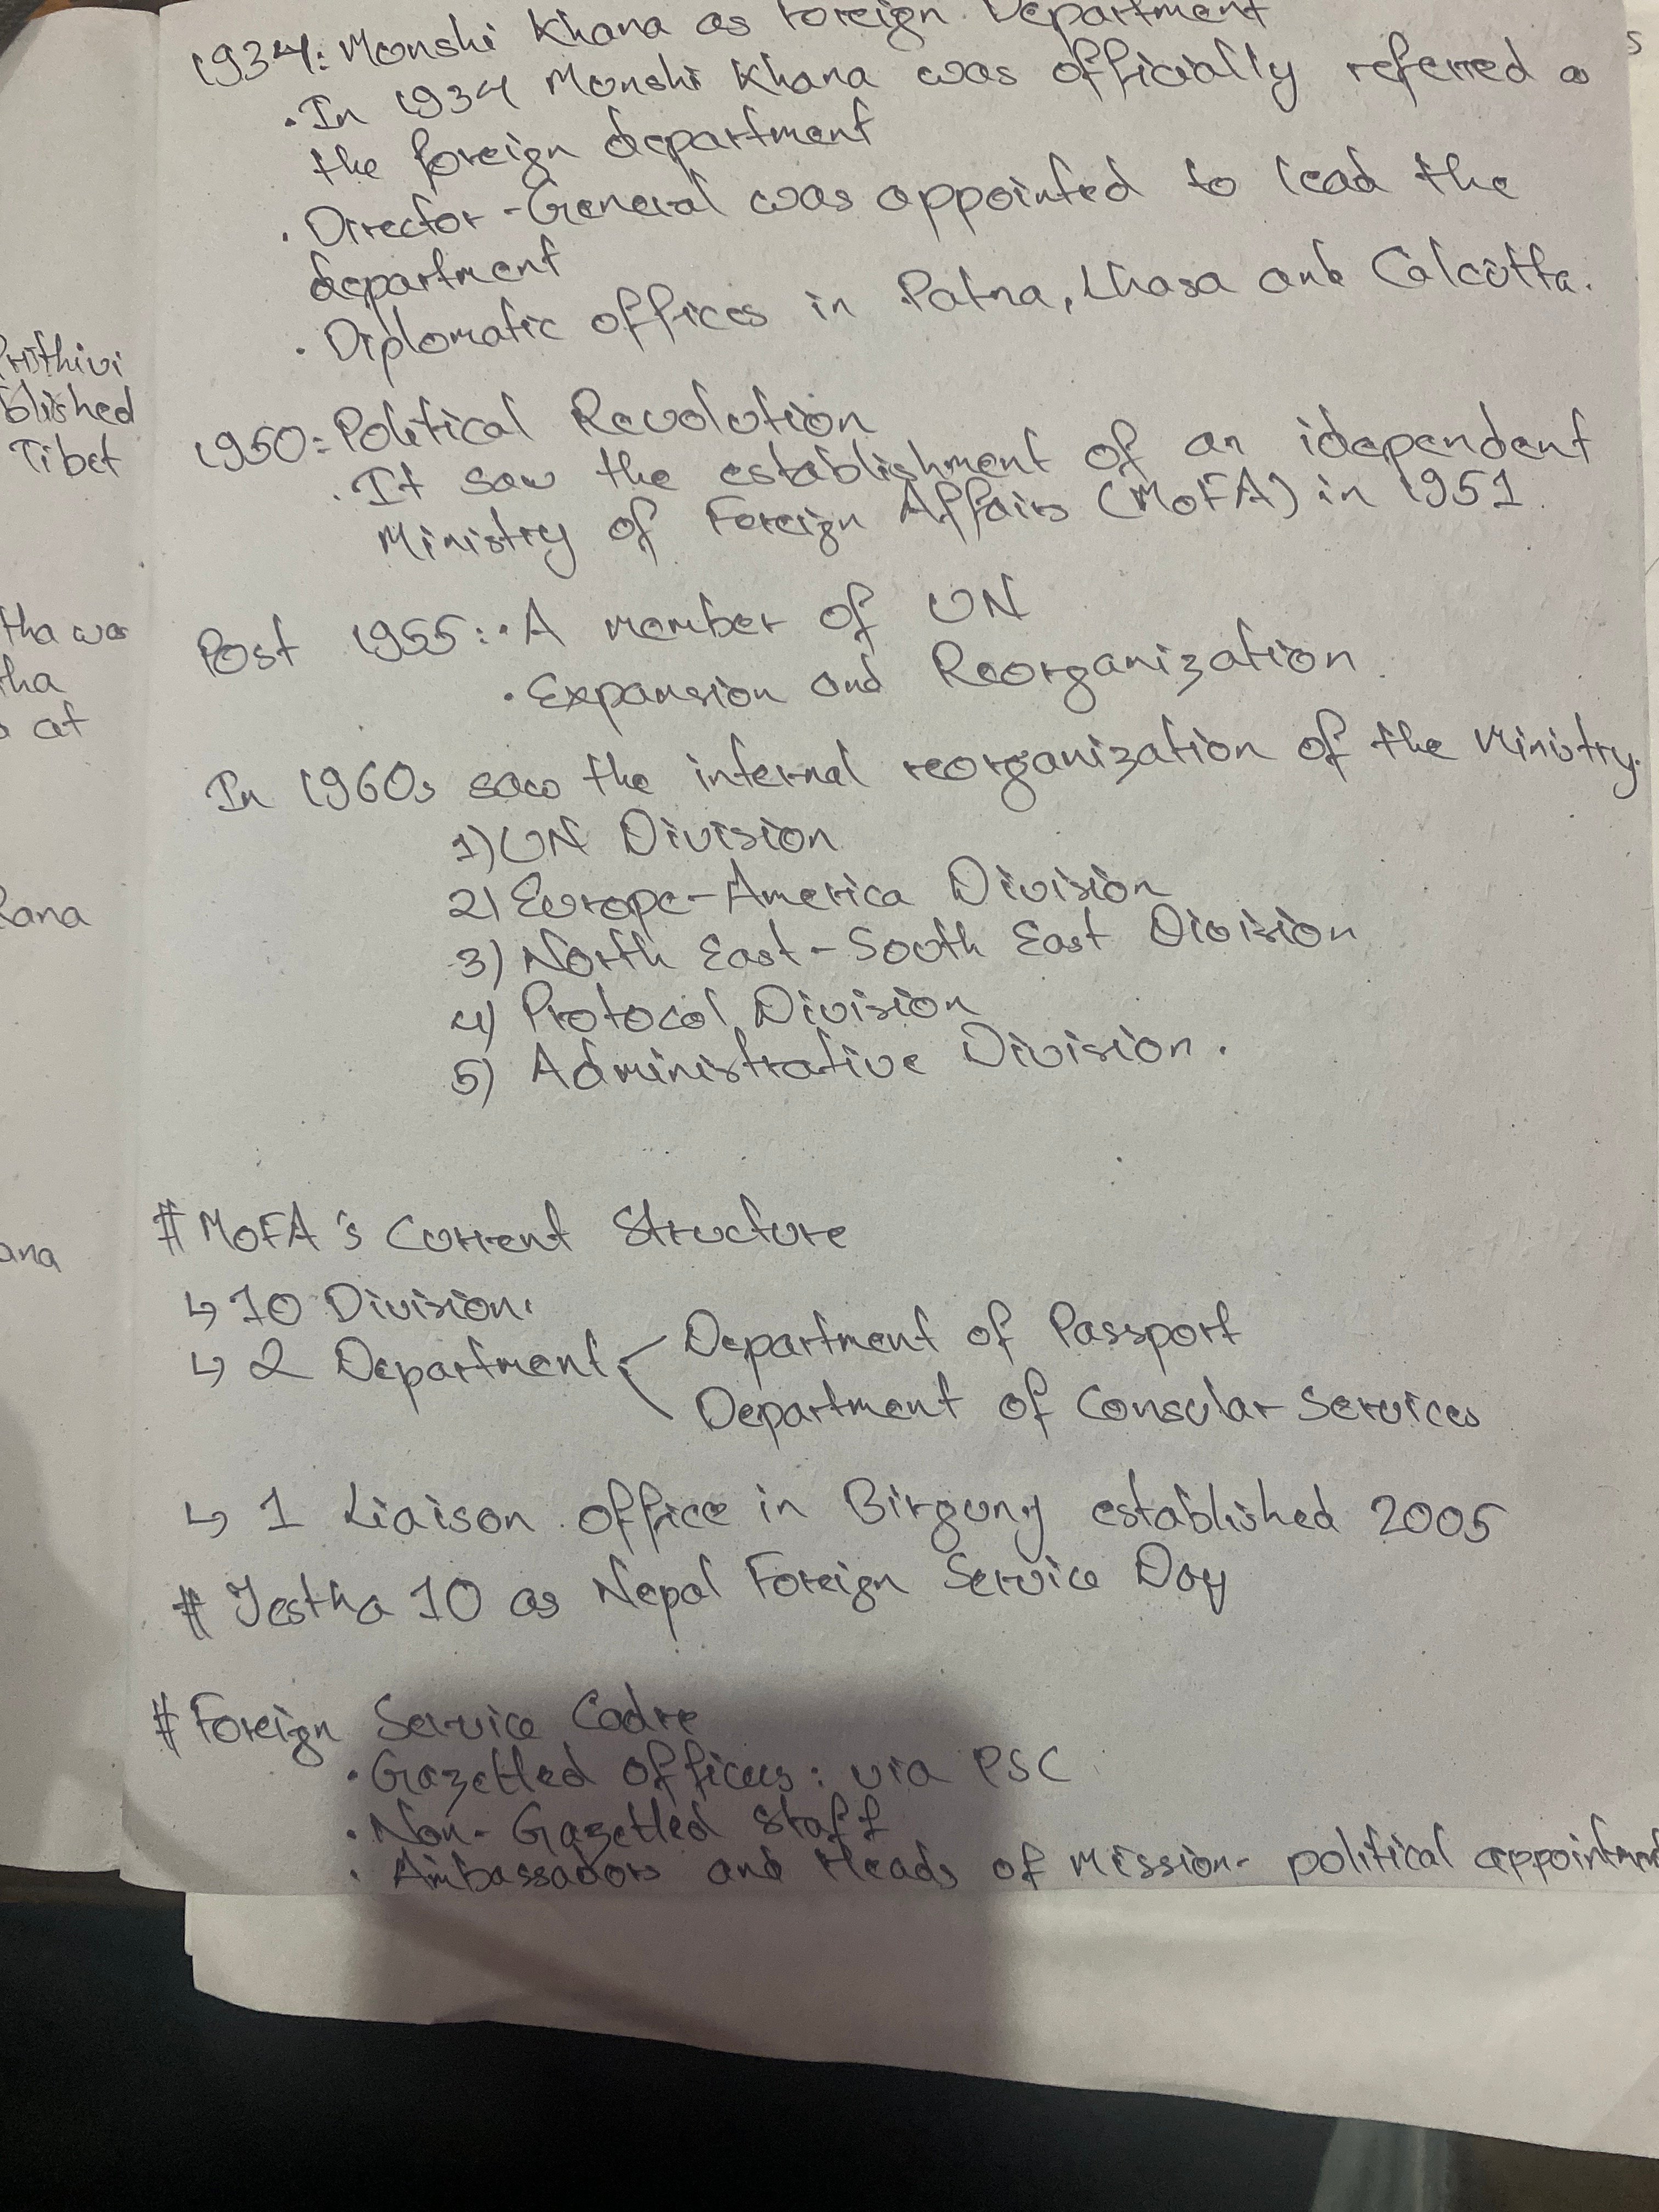 1934: Monshi Khana as Foreign Department
· In 1934 Monshi Khana was officially referred as
the foreign department
· Director-General was appointed to lead the
department
· Diplomatic offices in Patna, Lhasa and Calcutta.
1950: Political Revolution
· It saw the establishment of an idependent
Ministry of Foreign Affairs (MoFA) in 1951.
Post 1955: · A member of UN
· Expansion and Reorganization.
In 1960s saw the internal reorganization of the Ministry.
1) UN Division
2) Europe-America Division
3) North East-South East Division
4) Protocol Division
5) Administrative Division.
# MoFA's Current Structure
↳ 10 Divisions
↳ 2 Departments
Department of Passport
Department of Consular Services
↳ 1 Liaison office in Birgunj established 2005
# Jestha 10 as Nepal Foreign Service Day
# Foreign Service Cadre
· Gazetted officers: via PSC
· Non-Gazetted staff
· Ambassadors and Heads of mission- political appointmen
Prithivi
blished
Tibet
tha was
tha
at
Rana
ana
s